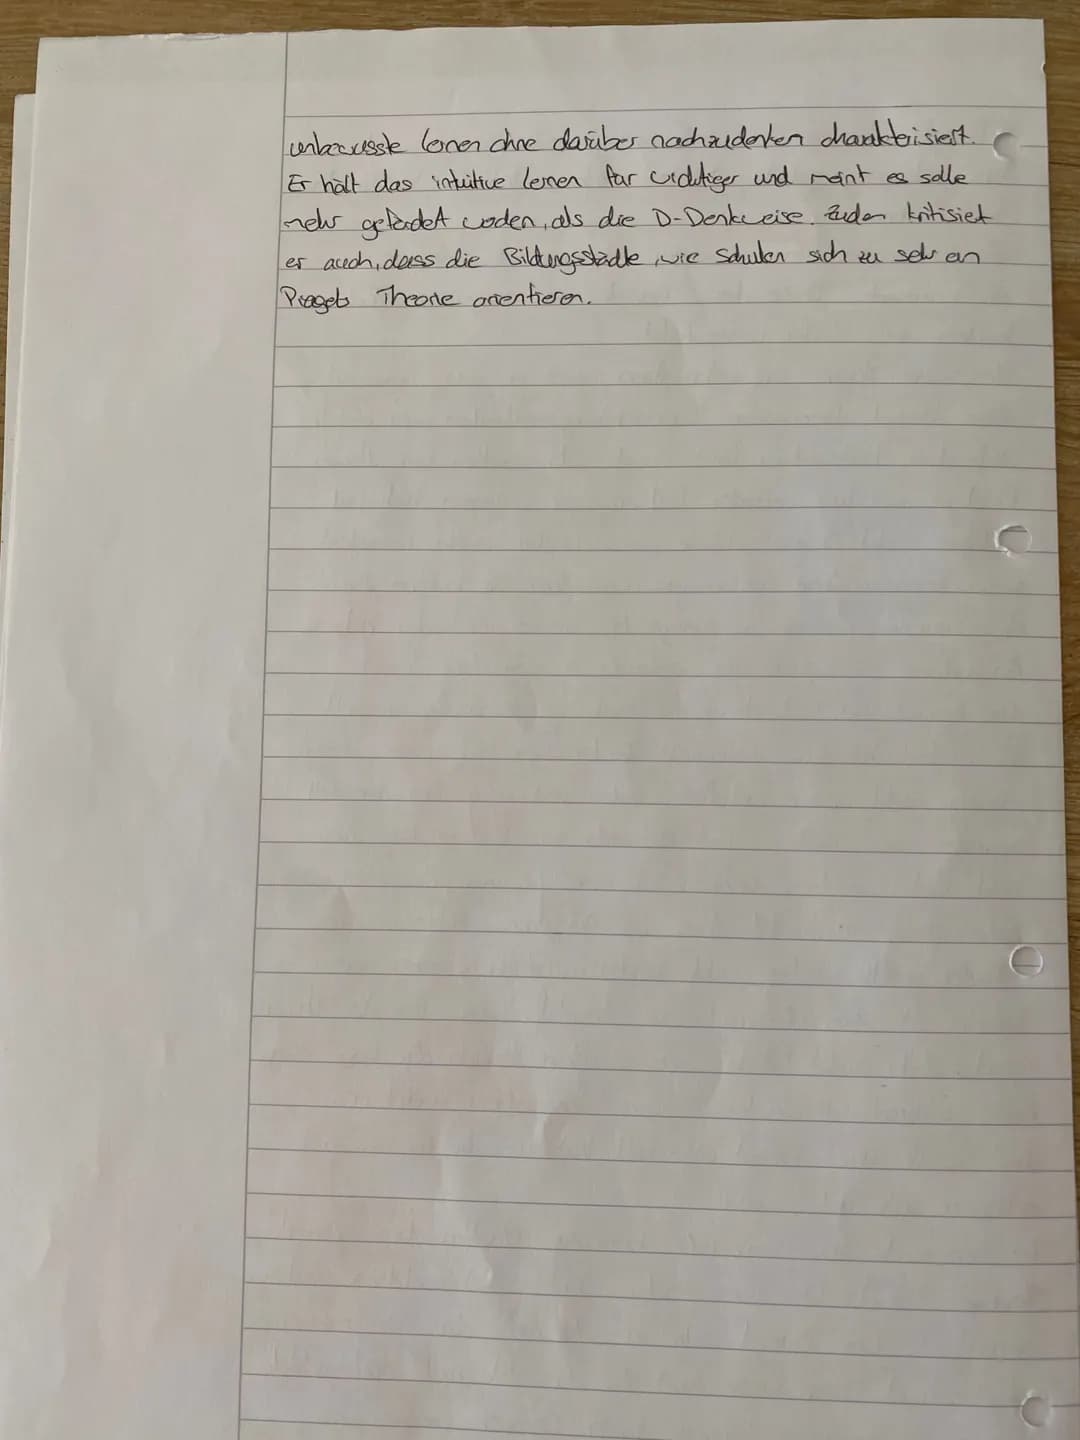 unbewusste lernen ohne darüber nachzudenken charakterisiert.
Er hält das intuitive lernen für wichtiger und meint es solle
mehr gefördert werden, als die D-Denkweise. Zudem kritisiert
er auch, dass die Bildungsstädte, wie Schulen sich zu sehr an
Piagets Theorie orientieren.